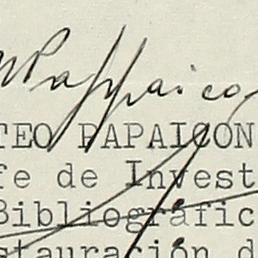 Pappaico
TEO PAPAICON
fe de Invest
Bibliográfic
stauración d